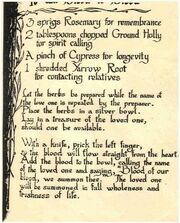 3 sprigs Rosemary for remembrance
2 tablespoons chopped Ground Holly
for spirit calling
A pinch of Cypress for longevity
1 shredded Yarrow Root
for contacting relatives
Let the herbs be prepared while the name
of the low one is repeated by the preparer.
Place the herbs in a silver bowl.
Lay in a treasure of the loved one,
should one be available.
With a knife, prick the left finger,
the blood will flow straight from the heart.
Add the blood to the bowl, calling the name
of the loved one and saying, "Blood of our
, we summon thee." The loved one
will be summoned in full wholeness and
freshness of life.